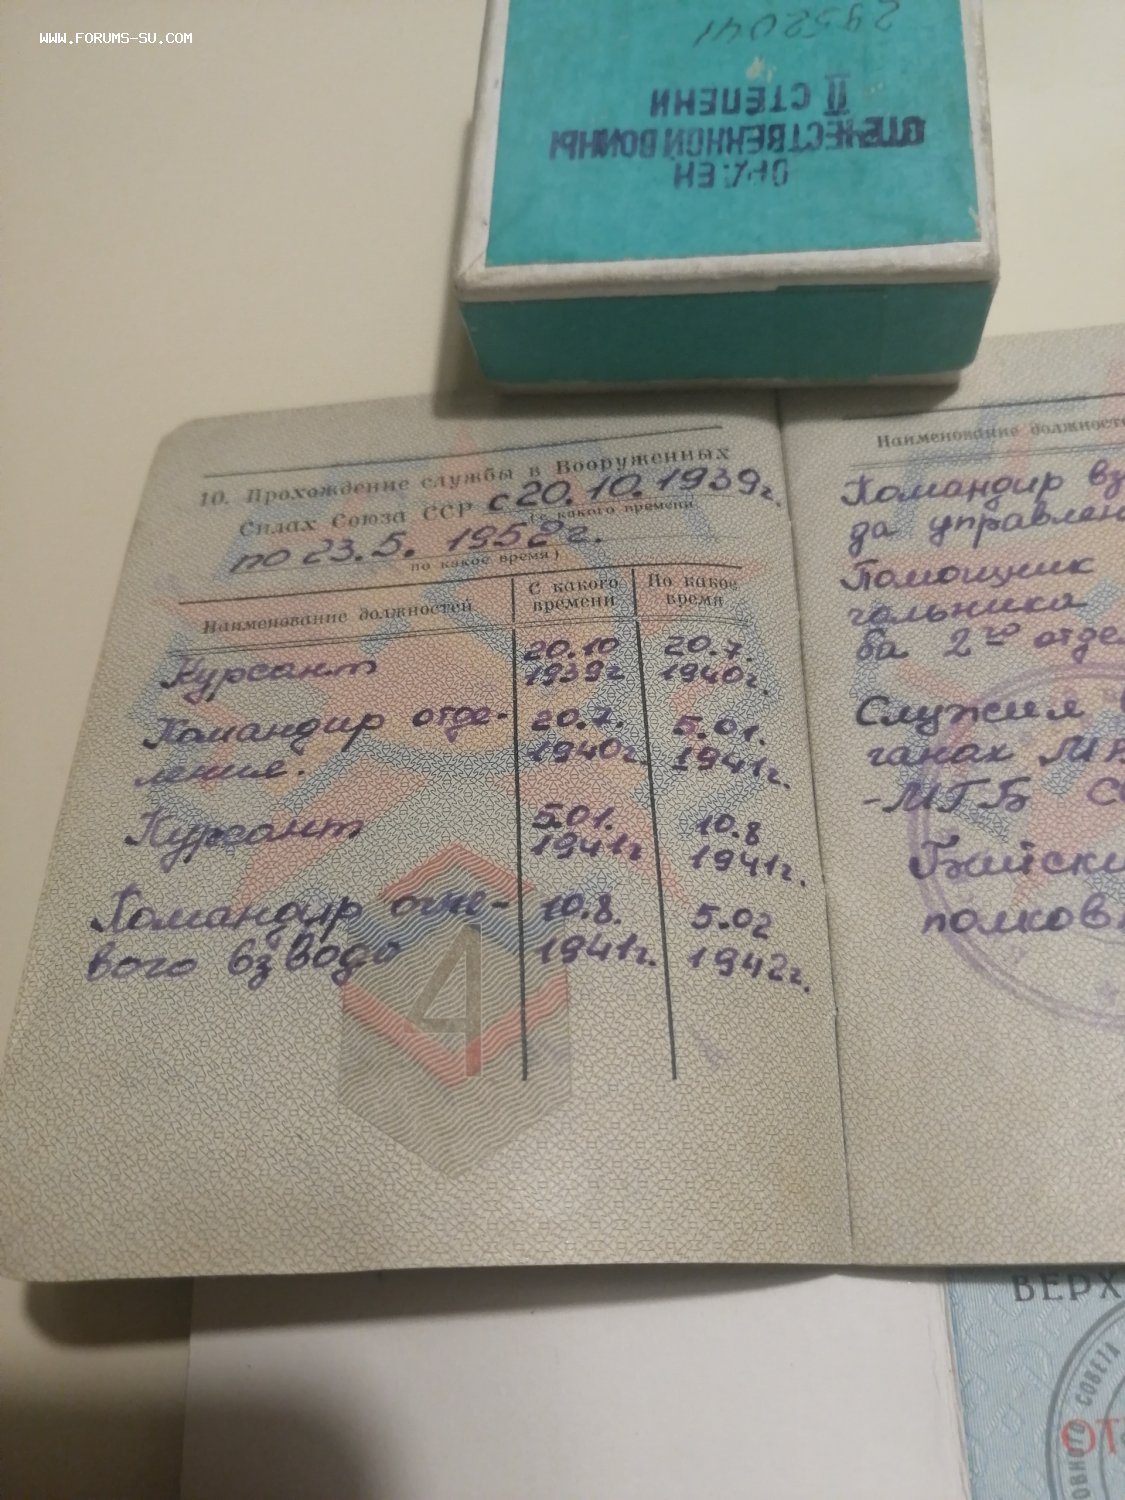 WWW.FORUMS-SU.COM
2952041
ОРДЕН
ОТЕЧЕСТВЕННОЙ ВОЙНЫ
II СТЕПЕНИ
10. Прохождение службы в Вооруженных
Силах Союза ССР с 20.10.1939г.
(с какого времени
по 23.5. 1952г.
по какое время)
Наименование должностей С какого времени По какое время
Курсант 20.10 1939г 20.7. 1940г.
Командир отде-
ление. 20.7. 1940г. 5.01. 1941г.
Курсант 5.01. 1941г 10.8 1941г.
Командир огне-
вого взвода 10.8. 1941г. 5.02 1942г.
4
Наименование должносте
Командир вз
да управлен
Помощник
чальника
ба 2го отде
Служил
ганах
-МГБ
полков
ВЕРХ
СОВЕТА